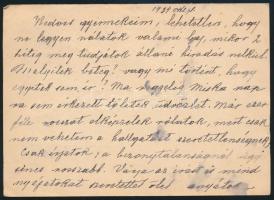 1939 okt. 4.
Kedves gyermekeim, lehetetlen, hogy
ne legyen nálatok valami baj, mikor 2
hétig meg tudjátok állani híradás nélkül.
Melyitek beteg? vagy mi történt, hogy
egyitek sem ír? Ma reggelig Miska nap
ra sem érkezett tőletek üdvözlet. Már ezer
féle rosszat elképzelek rólatok, mert csak
nem vehetem a hallgatást szeretetlenségnek;
Csak írjatok, a bizonytalanságnál
nincs rosszabb. Várja az írást és mind
nyájatokat szeretettel ölel anyátok